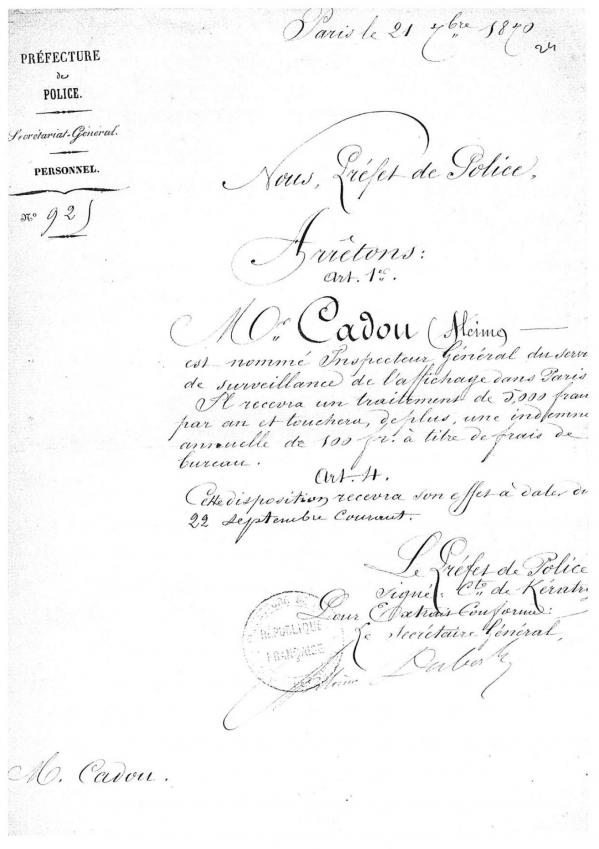 Paris le 21 7bre 1870
24
PRÉFECTURE
de
POLICE.
Secrétariat-Général.
PERSONNEL.
N° 925
Nous, Préfet de Police,
Arrêtons:
Art. 1er.
Mr Cadou
est nommé Inspecteur Général du servi
de surveillance de l'affichage dans Paris
Il recevra un traitement de 5,000 fran
par an et touchera, de plus, une indemn
annuelle de 100 fr. à titre de frais de
bureau.
Art. 4.
Cette disposition recevra son effet à dater du
22 septembre courant.
Le Préfet de Police
Signé: Cte de Kératry
Pour Extrait Conforme:
Le Secrétaire Général,
RÉPUBLIQUE
FRANÇAISE
M. Cadou.